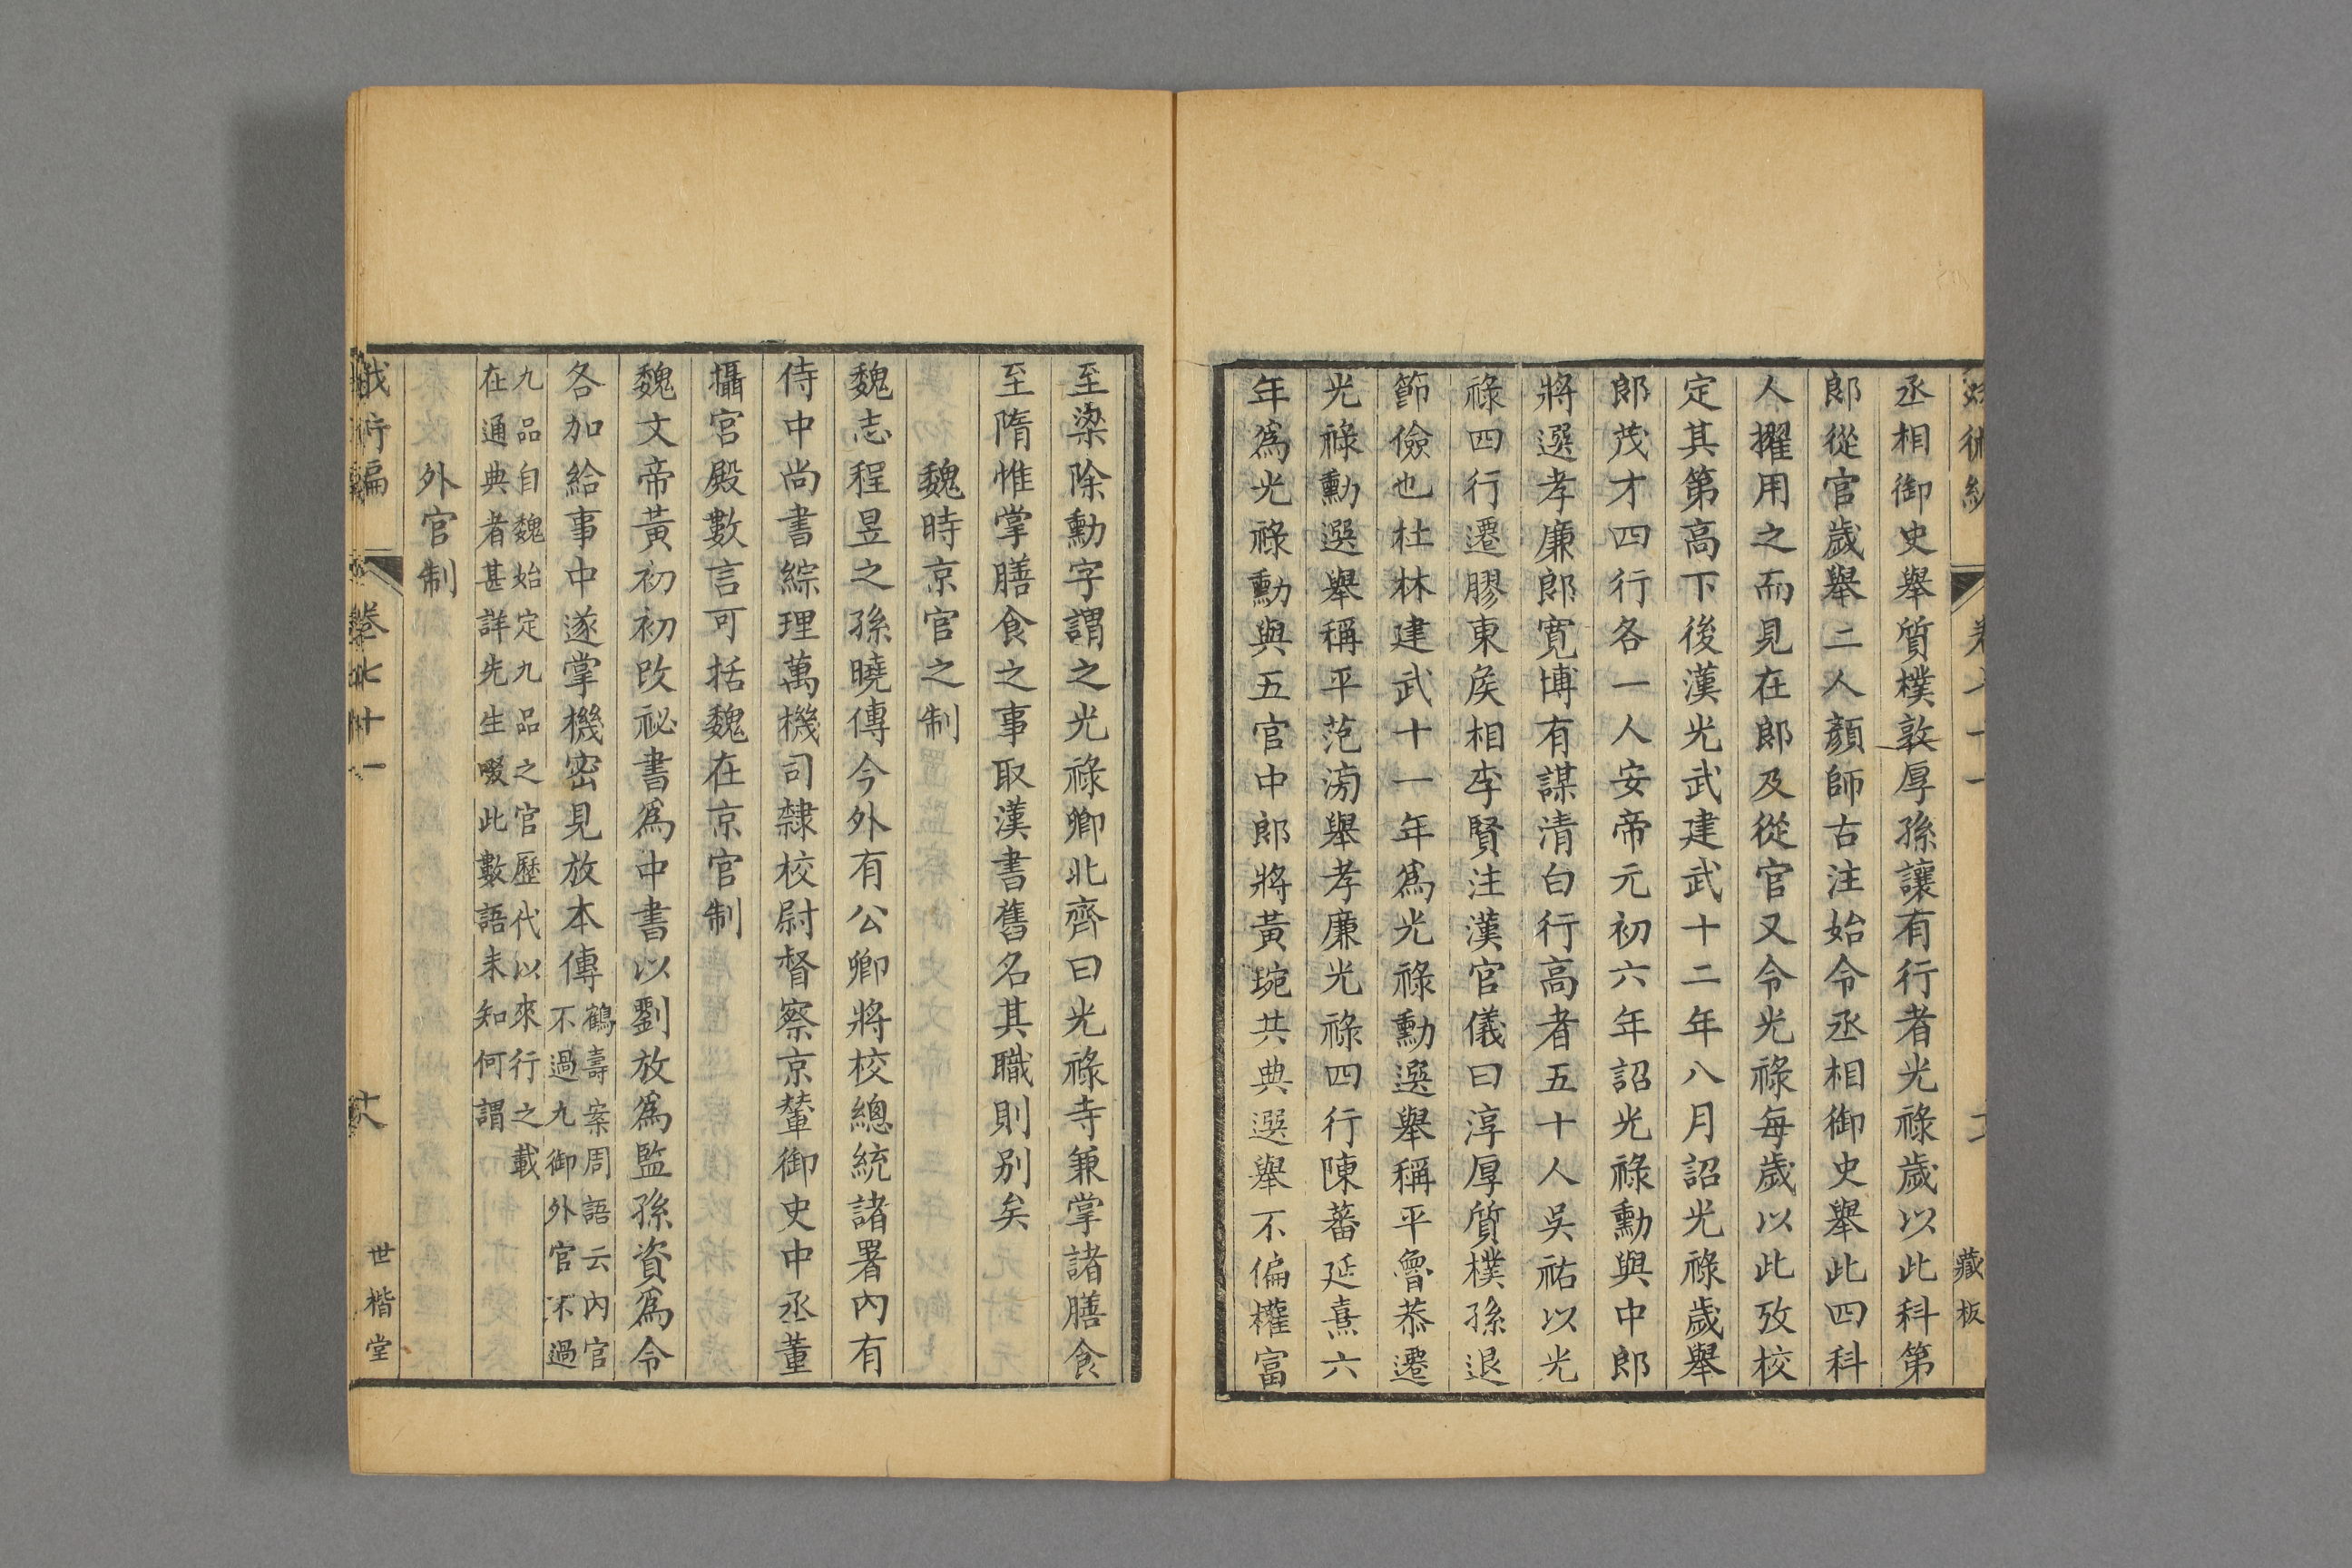 丞相御史舉質樸敦厚孫讓有行者光祿歲以此科第
郎從官歲舉二人顏師古注始令丞相御史舉此四科
人擢用之而見在郎及從官又令光祿每歲以此攷校
定其第高下後漢光武建武十二年八月詔光祿歲舉
郎茂才四行各一人安帝元初六年詔光祿勳與中郎
將選孝廉郎寬博有謀清白行高者五十人吳祐以光
祿四行遷膠東矦相李賢注漢官儀曰淳厚質樸孫退
節儉也杜林建武十一年爲光祿勳選舉稱平魯恭遷
光祿勳選舉稱平范滂舉孝廉光祿四行陳蕃延熹六
年爲光祿勳與五官中郎將黃琬共典選舉不偏權富
藏板
至梁除勳字謂之光祿卿北齊曰光祿寺兼掌諸膳食
至隋惟掌膳食之事取漢書舊名其職則别矣
魏時京官之制
魏志程昱之孫曉傳今外有公卿將校總統諸署內有
侍中尚書綜理萬機司隸校尉督察京輦御史中丞董
攝宮殿數言可括魏在京官制
魏文帝黃初初改祕書爲中書以劉放爲監孫資爲令
各加給事中遂掌機密見放本傳
鶴壽案周語云内官
不過九御外官不過
九品自魏始定九品之官歷代以來行之載
在通典者甚詳先生啜此數語未知何謂
外官制
世楷堂